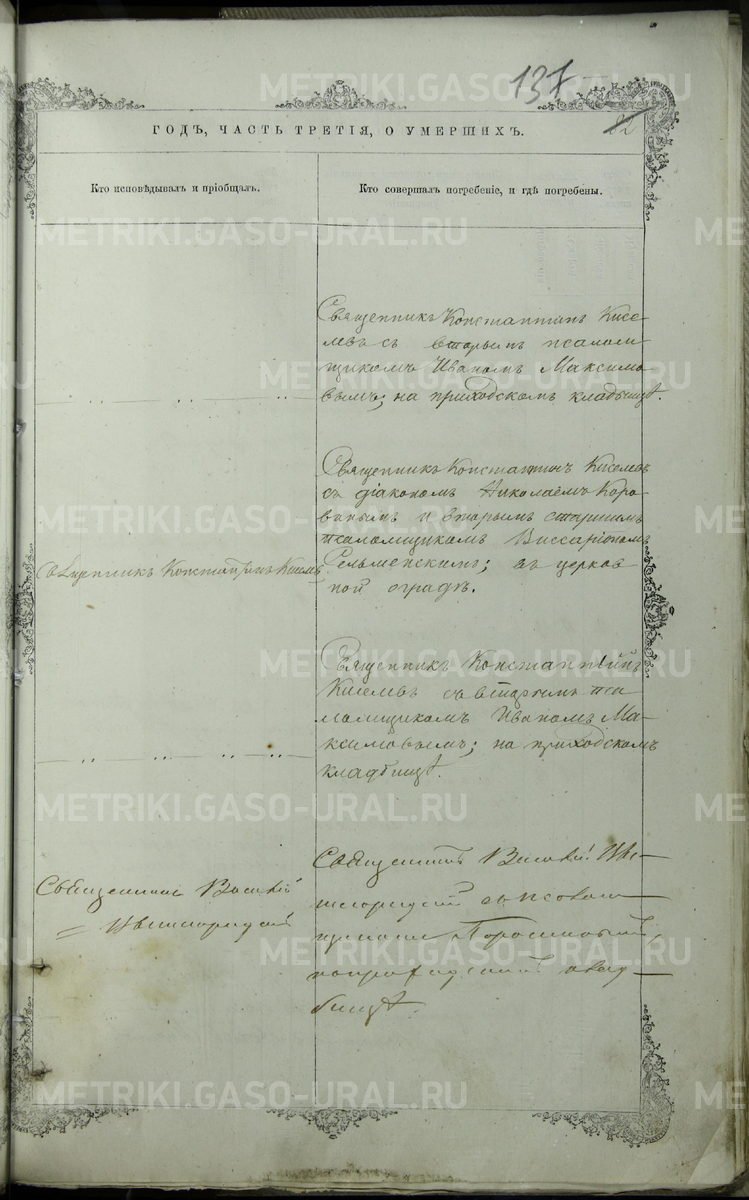 METRIKI.GASO-URAL.RU
137
82
ГОДЪ, ЧАСТЬ ТРЕТІЯ, О УМЕРШИХЪ.
Кто исповѣдывалъ и пріобщалъ.
Кто совершалъ погребеніе, и гдѣ погребены.
Священникъ Константинъ Кисе-
левъ съ вторымъ псалом
щикомъ Иваномъ Максимо
вымъ; на приходскомъ кладбищѣ.
Священникъ Константинъ Киселевъ
съ діакономъ Николаемъ Коро
винымъ и вторымъ старшимъ
псаломщикомъ Виссаріономъ
Священникъ Константинъ Киселевъ
въ церков
ной оградѣ.
Священникъ Константинъ
Киселевъ съ вторымъ пса
ломщикомъ Иваномъ Ма-
ксимовымъ; на приходскомъ
кладбищѣ.
Священникъ Василій
Священникъ Василій
клад
бищѣ.